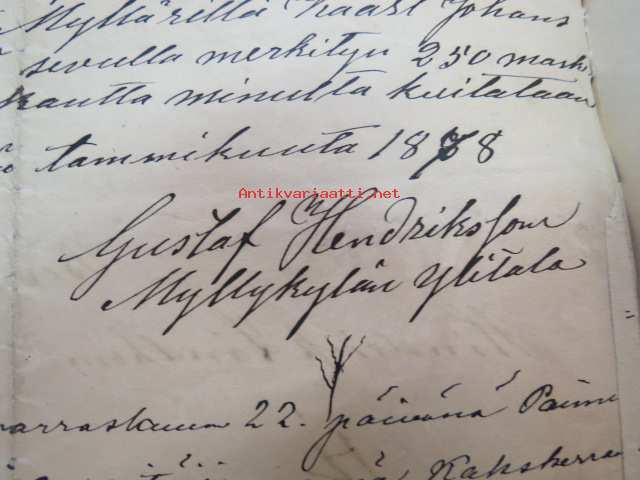 Myllärillä Kaarl Johans
sivulla merkityn 250 mark
kautta minulta kuitataan
tammikuuta 1878
Antikvariaatti.net
Gustaf Hendriksson
Myllykylän Ylitalo
marraskuun 22. päivänä Paimi
Kakskerran